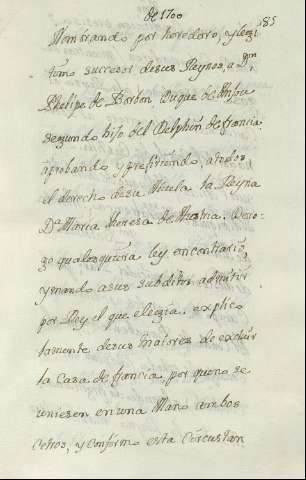 de 1700
185
Nombrando por heredero, y legi
timo sucesor desus Reynos, a Dⁿ
Phelipe de Borbon Duque de Anjou
segundo hijo del Delphin de francia
aprobando y prefiriendo, atodos
el derecho desu Abuela la Reyna
Dᵃ Maria theresa de Austria. Dero-
go qualesquiera ley encontrario,
ymando asus subditos admitir
por Rey el que elegia. explico
lamente desus maiores de excluir
la Casa de francia, por queno se
uniesen en una Mano ambos
Cetros, y confirmo esta circustan